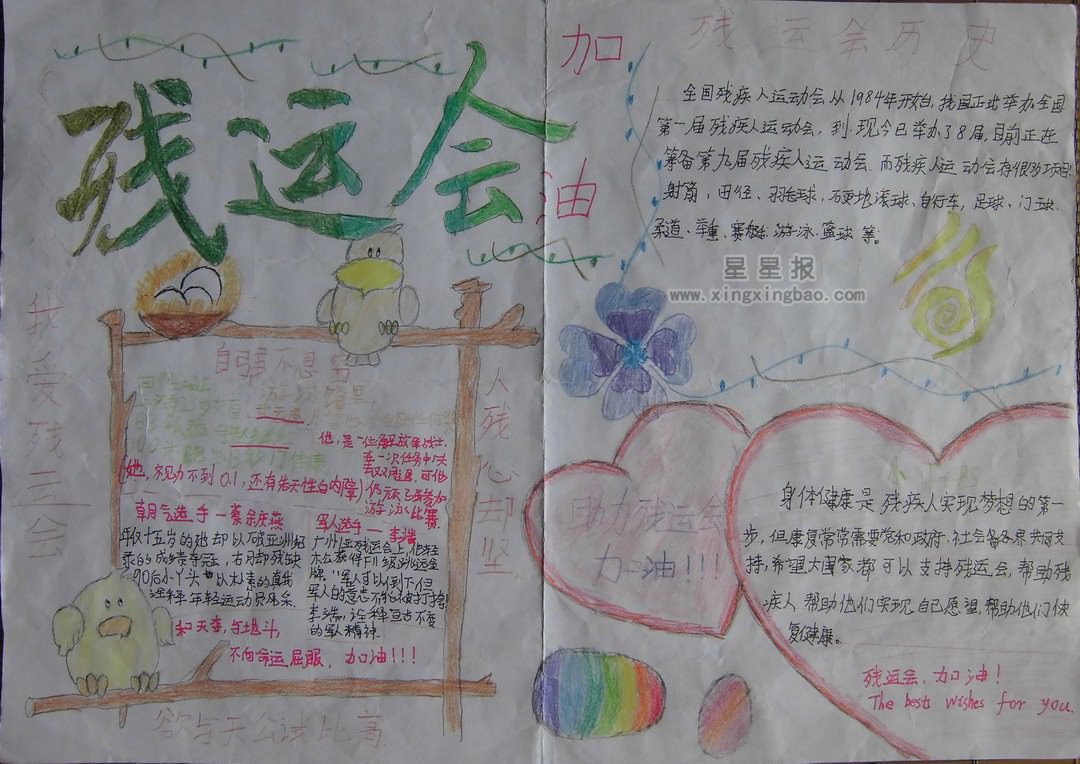 残运会
加
油
我爱残运会
自强不息
他,是一位解放军战士,
在一次任务中失
去双腿,可他
仍永不言参加
游泳比赛
(她,视力不到0.1,还有先天性白内障)
朝气选手—蔡余庆燕
年仅十五岁的她却以破亚洲纪
录的成绩夺冠,右月却残缺
90后小丫头
诠释年轻运动员风采
军人选手—李端
广州亚残运会上,他轻
松获得
牌,"军人可以倒下,但
军人的意志不能被打垮"
诠释亘古不变
的军人精神.
和天奋,与地斗,
不向命运屈服,加油!!!
人残心却坚
欲与天公试比高
残运会历史
全国残疾人运动会从1984年开始,我国正式举办全国
第一届残疾人运动会,到现今已举办了8届,目前正在
筹备第九届残疾人运动会.而残疾人运动会有很多项目:
射箭,田径、羽毛球,硬地滚球、自行车,足球、门球、
柔道、举重、赛艇、游泳、篮球等。
星星报
www.xingxingbao.com
助力残运会
加油!!!
身体健康是残疾人实现梦想的第一
步,但康复常常需要党和政府、社会各界共同支
持,希望大国家都可以支持残运会,帮助残
疾人,帮助他们实现自己愿望,帮助他们恢
复健康。
残运会,加油!
The bests wishes for you.